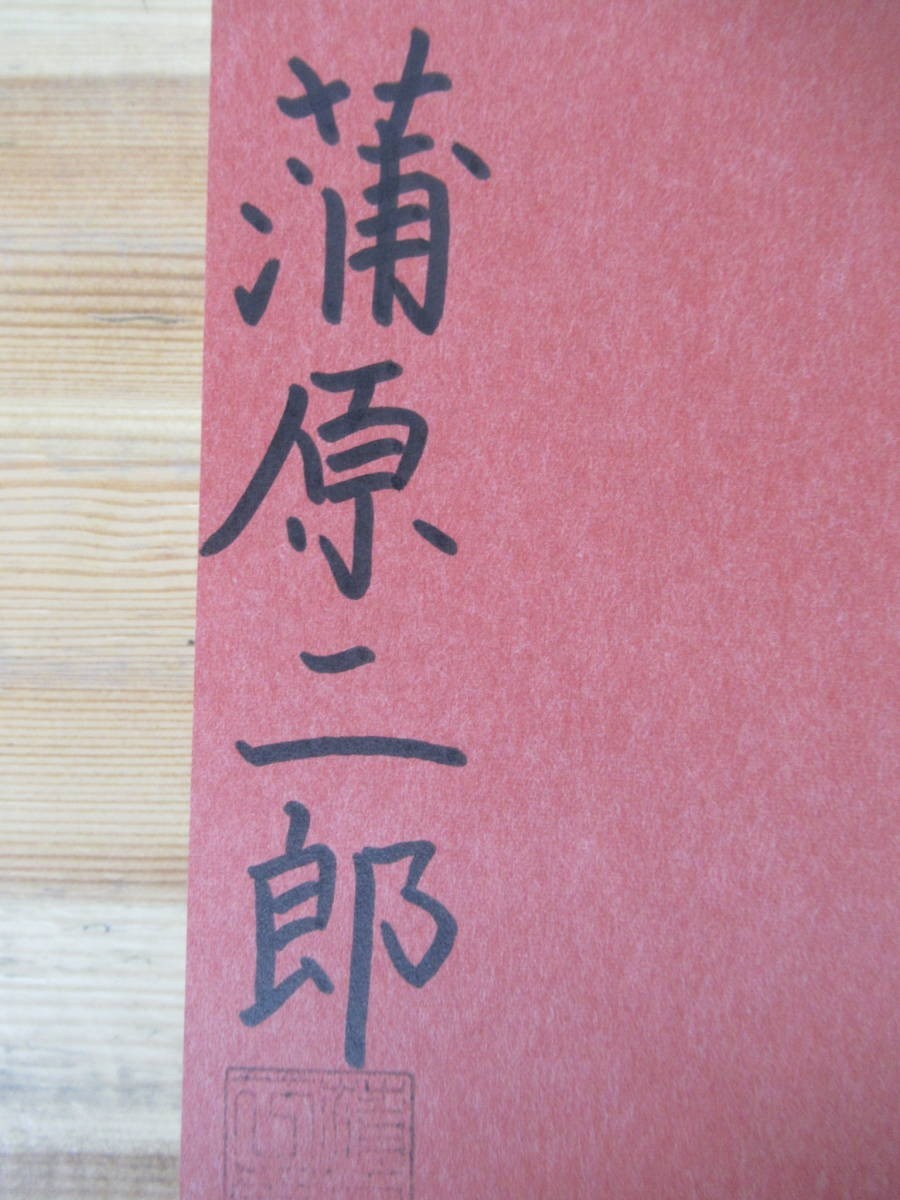 蒲原二郎